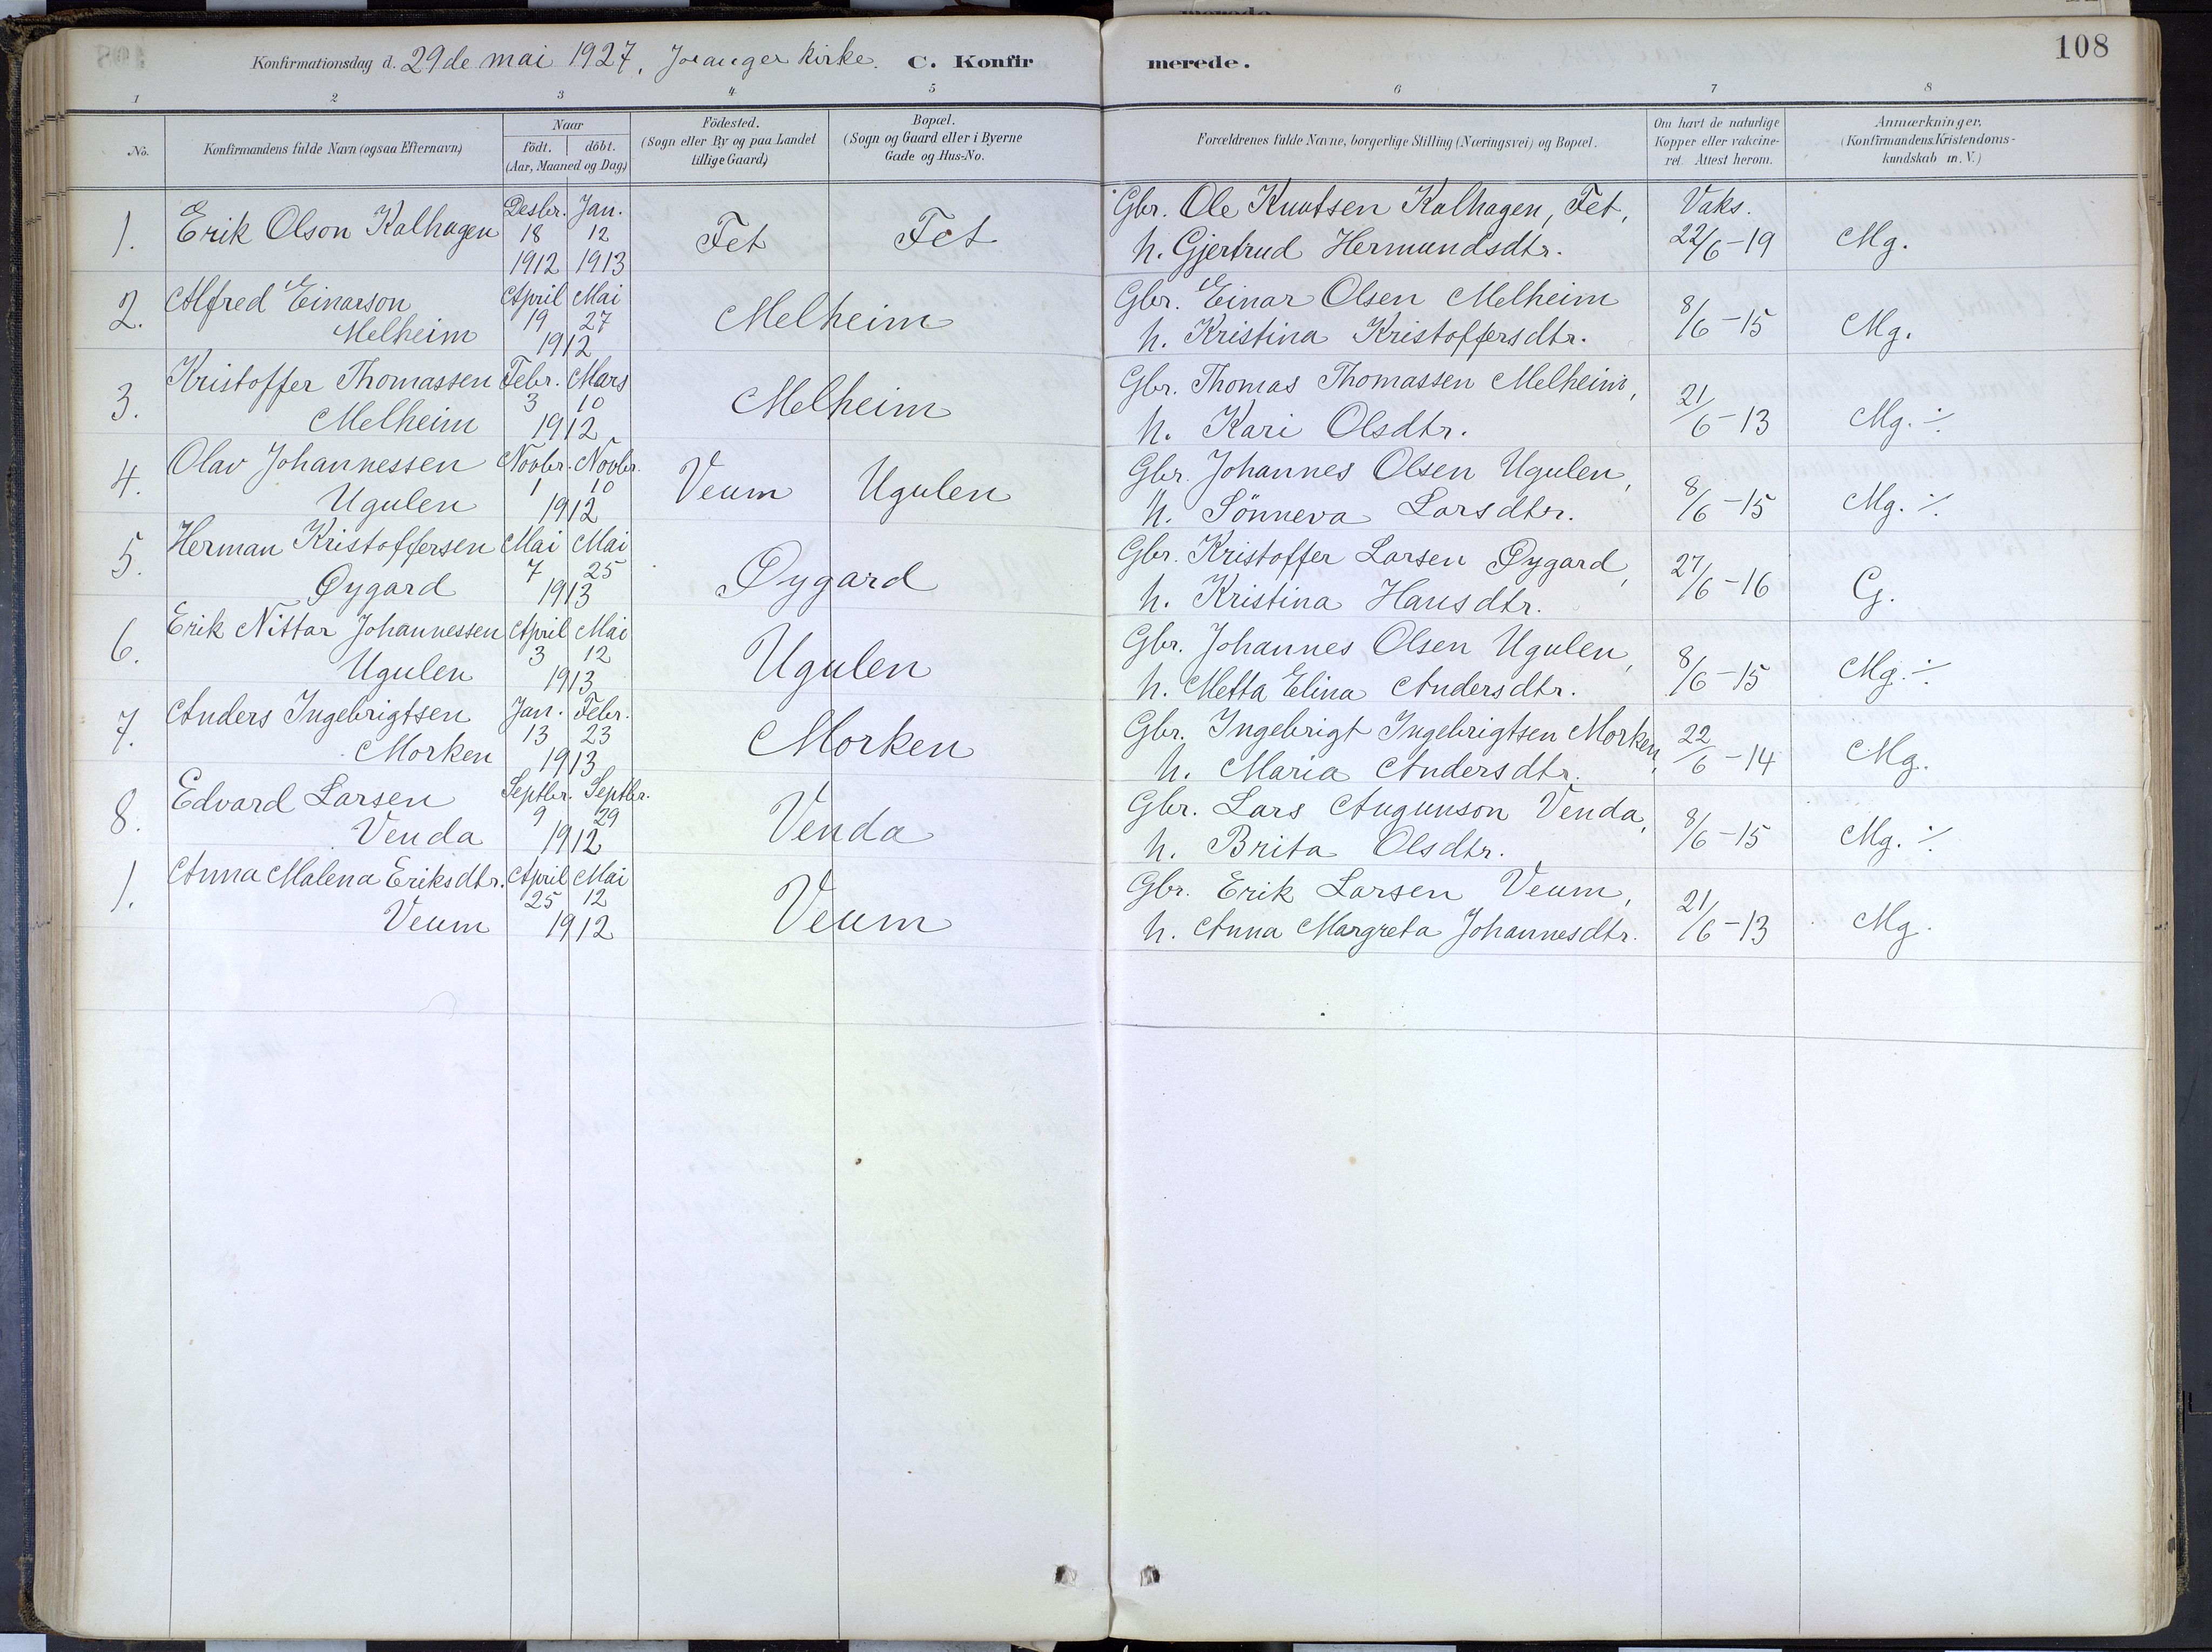 108
Konfirmationsdag d. 29de mai 1927, Joranger kirke. C. Konfirmerede.
1 2 3 4 5 6 7 8
No.
Konfirmandens fulde Navn (ogsaa Efternavn)
Naar
födt. döbt.
(Aar, Maaned og Dag)
Födested.
(Sogn eller By og paa Landet
tillige Gaard)
Bopæl.
(Sogn og Gaard eller i Byerne
Gade og Hus-No.
Forældrenes fulde Navne, borgerlige Stilling (Næringsvei) og Bopæl.
Om havt de naturlige
Kopper eller vakcine-
ret. Attest herom.
Anmærkninger.
(Konfirmandens Kristendoms-
kundskab m. V.)
1. Erik Olson Kalhagen Desbr. 18 1912 Jan. 12 1913 Fet Fet
Gbr. Ole Knutsen Kalhagen, Fet,
h. Gjertrud Hermundsdtr.
Vaks.
22/6-19 Mg.
2. Alfred Einarson
Melheim
April 19 Mai 27
1912
Melheim
Gbr. Einar Olsen Melheim
h. Kristina Kristoffersdtr.
8/6-15 Mg.
3. Kristoffer Thomassen
Melheim
Febr. 3 Mars 10
1912
Melheim
Gbr. Thomas Thomassen Melheim,
h. Kari Olsdtr.
21/6-13 Mg. ·/.
4. Olav Johannessen
Ugulen
Novbr. 1 Novbr. 10
1912
Veum Ugulen
Gbr. Johannes Olsen Ugulen,
h. Sönneva Larsdtr.
8/6-15 Mg. ·/.
5. Herman Kristoffersen
Øygard
Mai 7 Mai 25
1913
Øygard
Gbr. Kristoffer Larsen Øygard,
h. Kristina Hansdtr.
27/6-16 G.
6. Erik Nittar Johannessen
Ugulen
April 3 Mai 12
1913
Ugulen
Gbr. Johannes Olsen Ugulen,
h. Metta Elina Andersdtr.
8/6-15 Mg. ·/.
7. Anders Ingebrigtsen
Morken
Jan. 13 Febr. 23
1913
Morken
Gbr. Ingebrigt Ingebrigtsen Morken,
h. Maria Andersdtr.
22/6-14 Mg.
8. Edvard Larsen
Venda
Septbr. 9 Septbr. 29
1912
Venda
Gbr. Lars Augunson Venda,
h. Brita Olsdtr.
8/6-15 Mg. ·/.
1. Anna Malena Eriksdtr.
Veum
April 25 Mai 12
1912
Veum
Gbr. Erik Larsen Veum,
h. Anna Margreta Johannesdtr.
21/6-13 Mg.